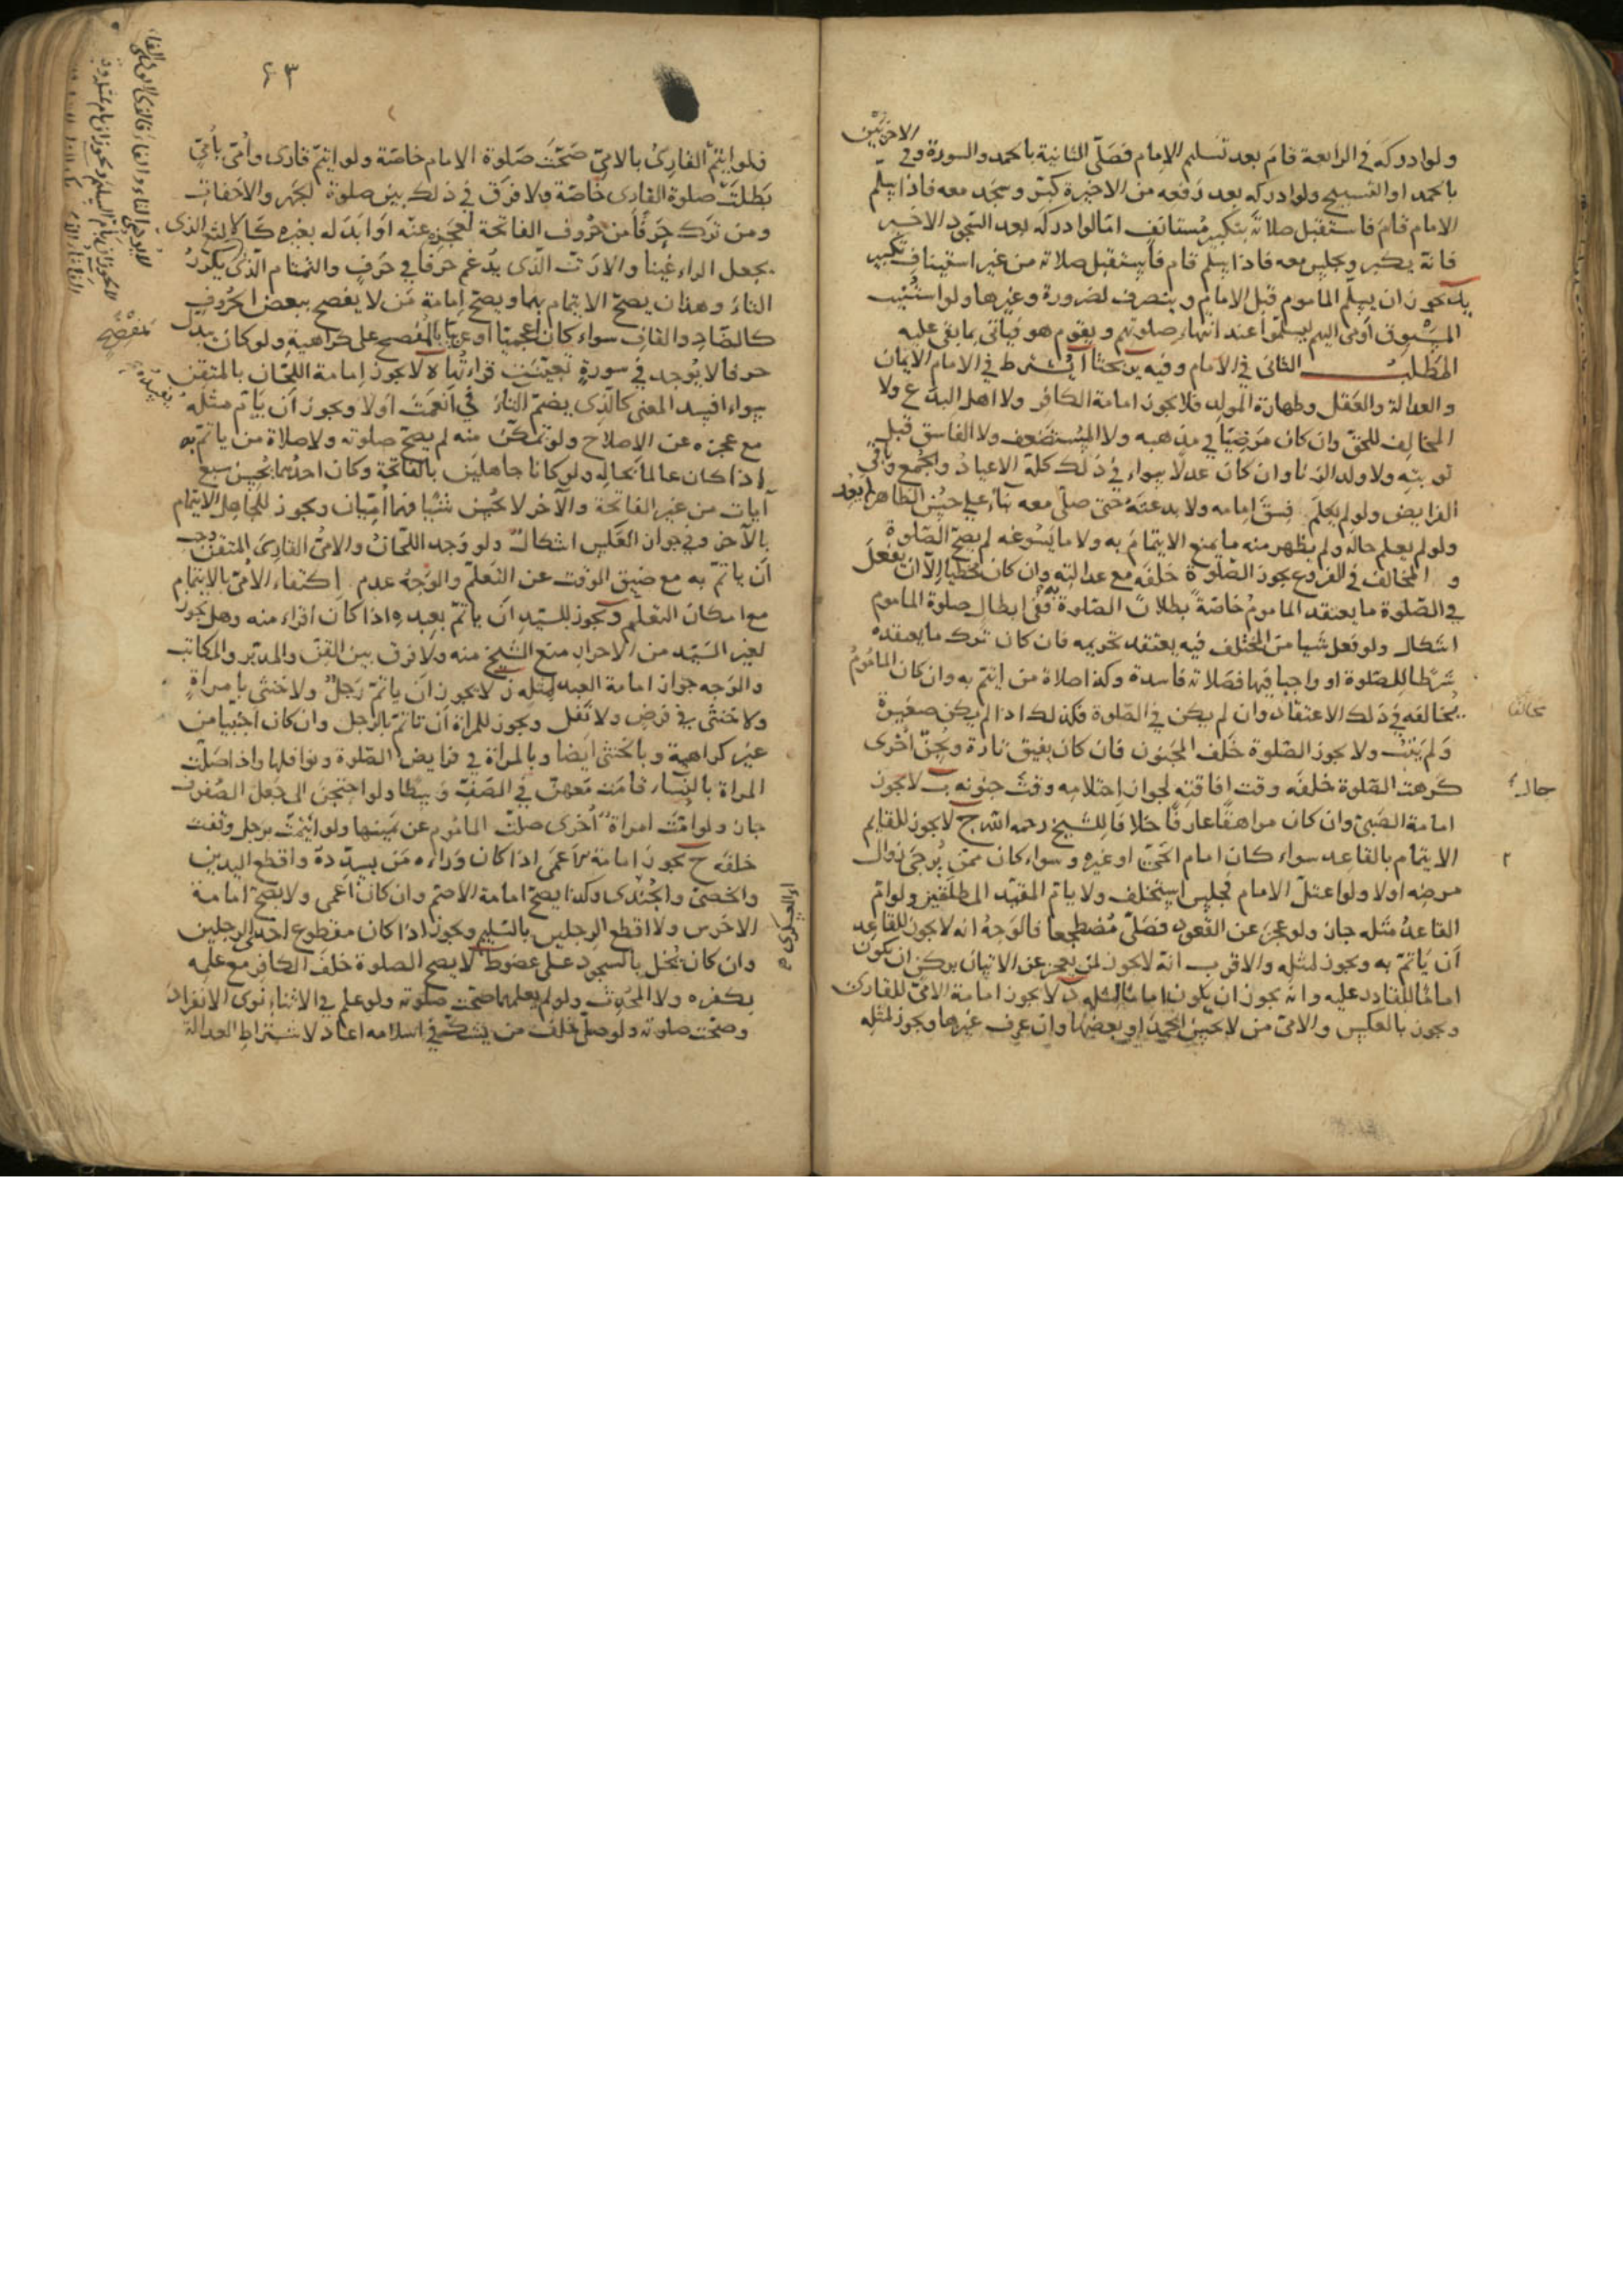 ولو ادركه في الرابعة قام بعد تسليم الامام فصلى الثانية بالحمد والسورة وفي الاخيرتين
بالحمد او التسبيح ولو ادركه بعد رفعه من الاخيرة كبر وسجد معه فاذا سلم
الامام قام فاستقبل صلاته بتكبير مستانف اما لو ادركه بعد السجود الاخير
فانه يكبر ويجلس معه فاذا سلم قام فاستقبل صلاته من غير استيناف تكبير
يد يجوز ان يسلم المأموم قبل الامام وينصرف لضرورة وغيرها ولو استنيب
المسبوق اومئ اليهم ليسلموا عند انتهاء صلوتهم ويقوم هو فيأتي بما بقي عليه
المطلب الثاني في الامام وفيه بحثا ا يشترط في الامام الايمان
والعدالة والعقل وطهارة المولد فلا يجوز امامة الكافر ولا اهل البدع ولا
المخالف للحق وان كان مرضيا في مذهبه ولا المستضعف ولا الفاسق قبل
توبته ولا ولد الزنا وان كان عدلا سواء في ذلك كله الاعياد والجمع وباقي
الفرايض ولو لم يعلم فسق امامه ولا بدعته حتى صلى معه بناء على حسن الظاهر لم يعد
ولو لم يعلم حاله ولم يظهر منه ما يمنع الايتمام به ولا ما يسوغه لم يصح الصلوة
و المخالف في الفروع يجوز الصلوة خلفه مع عدالته وان كان مخطيا الا ان يفعل
في الصلوة ما يعتقد المأموم خاصة بطلان الصلوة به ففي ابطال صلوة المأموم
اشكال ولو فعل شيا من المختلف فيه يعتقد تحريمه فان كان ترك ما يعتقده
شرطا للصلوة او واجبا فيها فصلاته فاسدة وكذا صلاة من ائتم به وان كان المأموم
يخالفه في ذلك الاعتقاد وان لم يكن في الصلوة فكذلك اذا لم يكن صغيرة
ولم يتب ولا يجوز الصلوة خلف المجنون فان كان يفيق تارة ويجن اخرى
كرهت الصلوة خلفه وقت افاقته لجواز احتلامه وقت جنونه ب لا يجوز
امامة الصبي وان كان مراهقا عارفا خلافا للشيخ رحمه الله ج لا يجوز للقايم
الايتمام بالقاعد سواء كان امام الحي او غيره وسواء كان ممن يرجى زوال
مرضه اولا ولو اعتل الامام فجلس استخلف ولا ياتم المقيد المطلقين ولو ام
القاعد مثله جاز ولو عجز عن القعود فصلى مضطجعا فالوجه انه لا يجوز للقاعد
ان ياتم به ويجوز لمثله والاقرب انه لا يجوز لمن يعجز عن الاتيان بركن ان يكون
اماما للقادر عليه وانه يجوز ان يكون اماما لمثله د لا يجوز امامة الامي للقارئ
ويجوز بالعكس والامي من لا يحسن الحمد او بعضها وان عرف غيرها ويجوز لمثله
حال
٢
٤٣
فلو ائتم القارئ بالامي صحت صلوة الامام خاصة ولو ائتم قارئ وامي بأمي
بطلت صلوة القارئ خاصة ولا فرق في ذلك بين صلوة الجهر والاخفات
ومن ترك حرفا من حروف الفاتحة لعجزه عنه او ابدله بغيره كالالثغ الذي
يجعل الراء غينا والارت الذي يدغم حرفا في حرف والتمتام الذي يكرر
التاء وهذان يصح الايتمام بهما ويصح امامة من لا يفصح ببعض الحروف
كالضاد والقاف سواء كان اعجميا او عربيا بالمفصح على كراهية ولو كان يبدل
حرفا لا يوجد في سورة تعينت قراءتها ه لا يجوز امامة اللحان بالمتقن
سواء افسد المعنى كالذي يضم التاء في انعمت اولا ويجوز ان ياتم مثله
مع عجزه عن الاصلاح ولو تمكن منه لم يصح صلوته ولا صلاة من ياتم به
اذا كان عالما بحاله ولو كانا جاهلين بالفاتحة وكان احدهما يحسن سبع
آيات من غير الفاتحة والآخر لا يحسن شيئا فهما اميان ويجوز للجاهل الايتمام
بالآخر وفي جواز العكس اشكال ولو وجد اللحان والامي القارئ المتقن وجب
ان ياتم به مع ضيق الوقت عن التعلم والوجه عدم اكتفاء الامي بالايتمام
مع امكان التعلم و يجوز للسيد ان ياتم بعبده اذا كان اقراء منه وهل يجوز
لغير السيد من الاحرار منع الشيخ منه ولا فرق بين القن والمدبر والمكاتب
والوجه جواز امامة العبد لمثله ز لا يجوز ان ياتم رجل ولا خنثى بامراة
ولا خنثى في فرض ولا نفل ويجوز للمراة ان تاتم بالرجل وان كان اجنبيا من
غير كراهية وبالخنثى ايضا وبالمراة في فرايض الصلوة ونوافلها واذا صلت
المراة بالنساء قامت معهن في الصف وسطا ولو احتجن الى جعل الصفوف
جاز ولو امت امراة اخرى صلت المأموم عن يمينها ولو ائتمت برجل وقفت
خلفه ح يجوز امامة الاعمى اذا كان وراءه من يسدده واقطع اليدين
والخصي والجندي وكذا يصح امامة الاصم وان كان اعمى ولا يصح امامة
الاخرس ولا اقطع الرجلين بالسليم ويجوز اذا كان مقطوع احدى الرجلين
وان كان يخل بالسجود على عضو ط لا يصح الصلوة خلف الكافر مع علمه
بكفره ولا المحدث ولو لم يعلمهما صحت صلوته ولو علم في الاثناء نوى الانفراد
وصحت صلوته ولو صلى خلف من يشك في اسلامه اعاد لاشتراط العدالة